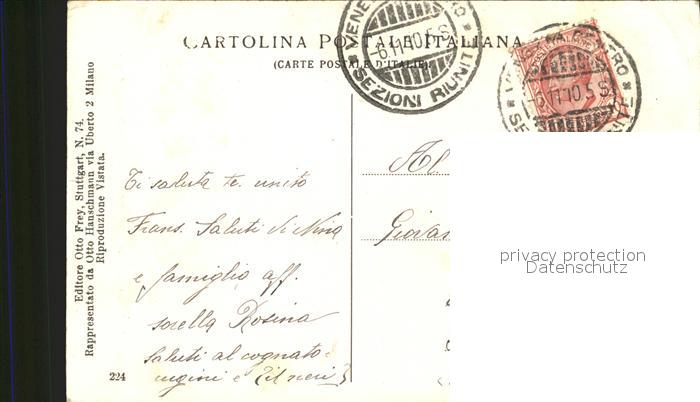 CARTOLINA POSTALE ITALIANA
(CARTE POSTALE D'ITALIE)
VENE
-6.11.10.5S
SEZIONI RIUNITE
Editore Otto Frey, Stuttgart, N. 74.
Rappresentato da Otto Hanschmann via Uberto 2 Milano
Riproduzione Vistata.
224
Ti saluta te. unito
Frans. Saluti di Nina
e famiglia aff.
sorella Rosina
Saluti al cognato
cugini e
Al
Giovan
privacy protection
Datenschutz